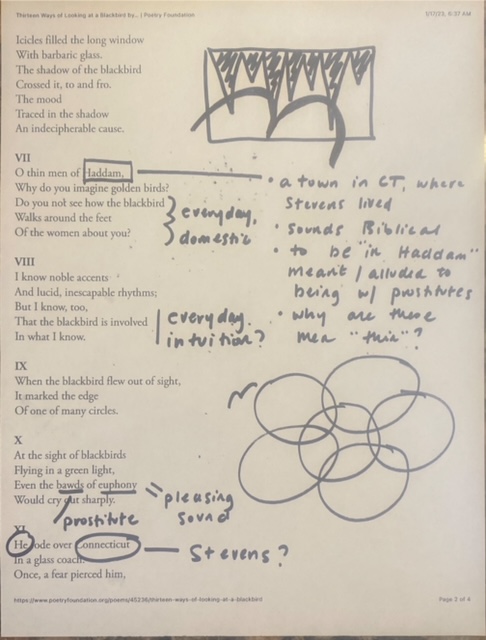 Thirteen Ways of Looking at a Blackbird by... | Poetry Foundation
1/17/23, 6:37 AM
Icicles filled the long window
With barbaric glass.
The shadow of the blackbird
Crossed it, to and fro.
The mood
Traced in the shadow
An indecipherable cause.
VII
O thin men of Haddam,
Why do you imagine golden birds?
Do you not see how the blackbird
Walks around the feet
Of the women about you?
everyday,
domestic
• a town in CT, where
Stevens lived
• sounds Biblical
• to be "in Haddam"
meant / alluded to
being w/ prostitutes
• why are these
men "thin"?
VIII
I know noble accents
And lucid, inescapable rhythms;
But I know, too,
That the blackbird is involved
In what I know.
everyday
intuition?
IX
When the blackbird flew out of sight,
It marked the edge
Of one of many circles.
X
At the sight of blackbirds
Flying in a green light,
Even the bawds of euphony
Would cry out sharply.
= pleasing
sound
prostitute
XI
He rode over Connecticut
In a glass coach.
Once, a fear pierced him,
Stevens?
https://www.poetryfoundation.org/poems/45236/thirteen-ways-of-looking-at-a-blackbird
Page 2 of 4